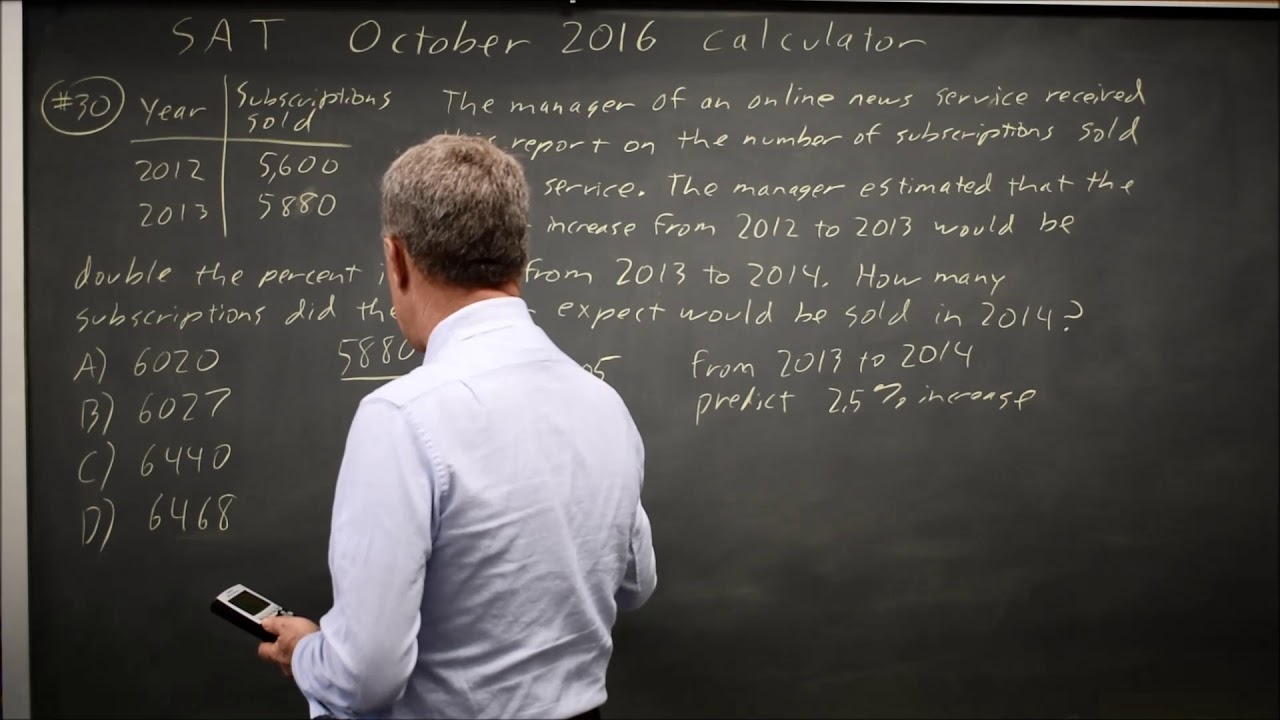 SAT October 2016 Calculator
#30
Year Subscriptions sold
2012 5,600
2013 5880
The manager of an online news service received
report on the number of subscriptions sold
service. The manager estimated that the
increase from 2012 to 2013 would be
double the percent from 2013 to 2014. How many
subscriptions did the expect would be sold in 2014?
A) 6020
B) 6027
C) 6440
D) 6468
5880
05
from 2013 to 2014
predict 2.5% increase